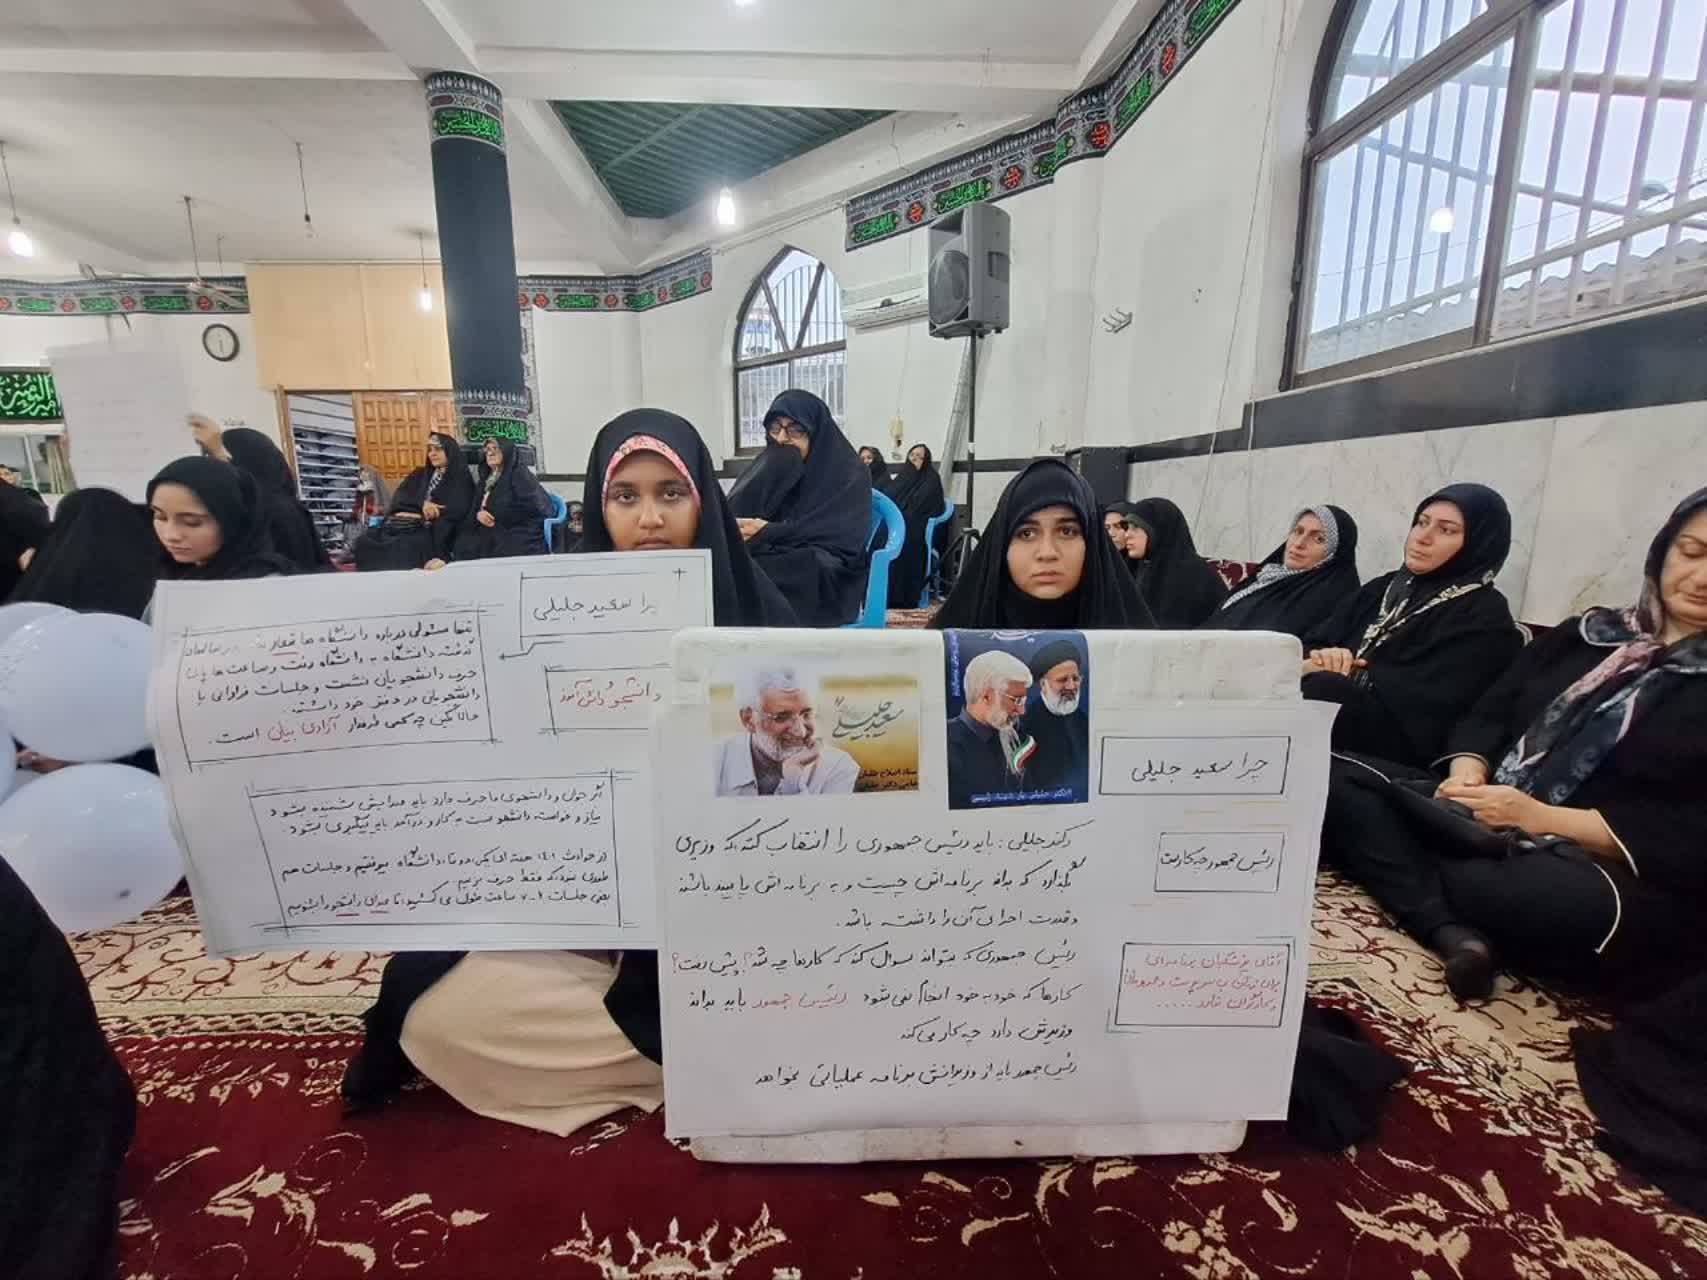 چرا سعید جلیلی
دانشجو و دانش آموز
تنها مسئولی درباره دانشگاه ها شعار
نداد، دانشگاه به دانشگاه رفت و ساعت ها پای
حرف دانشجویان نشست و جلسات فراوانی با
دانشجویان در دفتر خود داشته.
حالا بگین چه کسی طرفدار آزادی بیان است.
اگر جوان و دانشجوی ما حرف دارد باید صدایش شنیده بشود و
نیاز و خواسته دانشجو نسبت به کار و درآمد باید پیگیری بشود.
در حوادث ۱۴۰۱ هفته ای یکی دو تا دانشگاه میرفتیم و جلسات هم
طوری نبود که فقط حرف بزنیم.
بعضی جلسات ۶-۷ ساعت طول می کشید؛ تا صدای دانشجو را بشنویم
سعید جلیلی
ستاد اصلاح طلبان
حامی دکتر جلیلی
چرا سعید جلیلی
رئیس جمهور چه کارست
آقای پزشکیان برنامه ای
برای زنان بی سرپرست و
کارگران ندارد......
دکتر جلیلی: باید رئیس جمهوری را انتخاب کنند که وزیری
بگذارد که بداند برنامه اش چیست و به برنامه اش پایبند باشند
و قدرت اجرای آن را داشته باشد.
رئیس جمهوری که بتواند سوال کند که کارها چه شد؟ پیش رفت؟
کارها که خود به خود انجام نمی شود رئیس جمهور باید بداند
وزیرش دارد چه کار می کند
رئیس جمهور باید از وزیرانش برنامه عملیاتی بخواهد